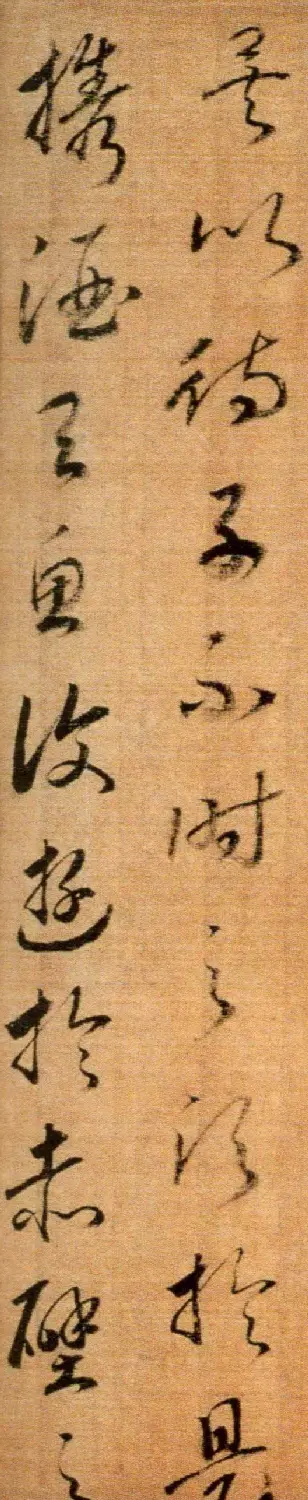 矣以待子不時之須於是
攜酒與魚復遊於赤壁之